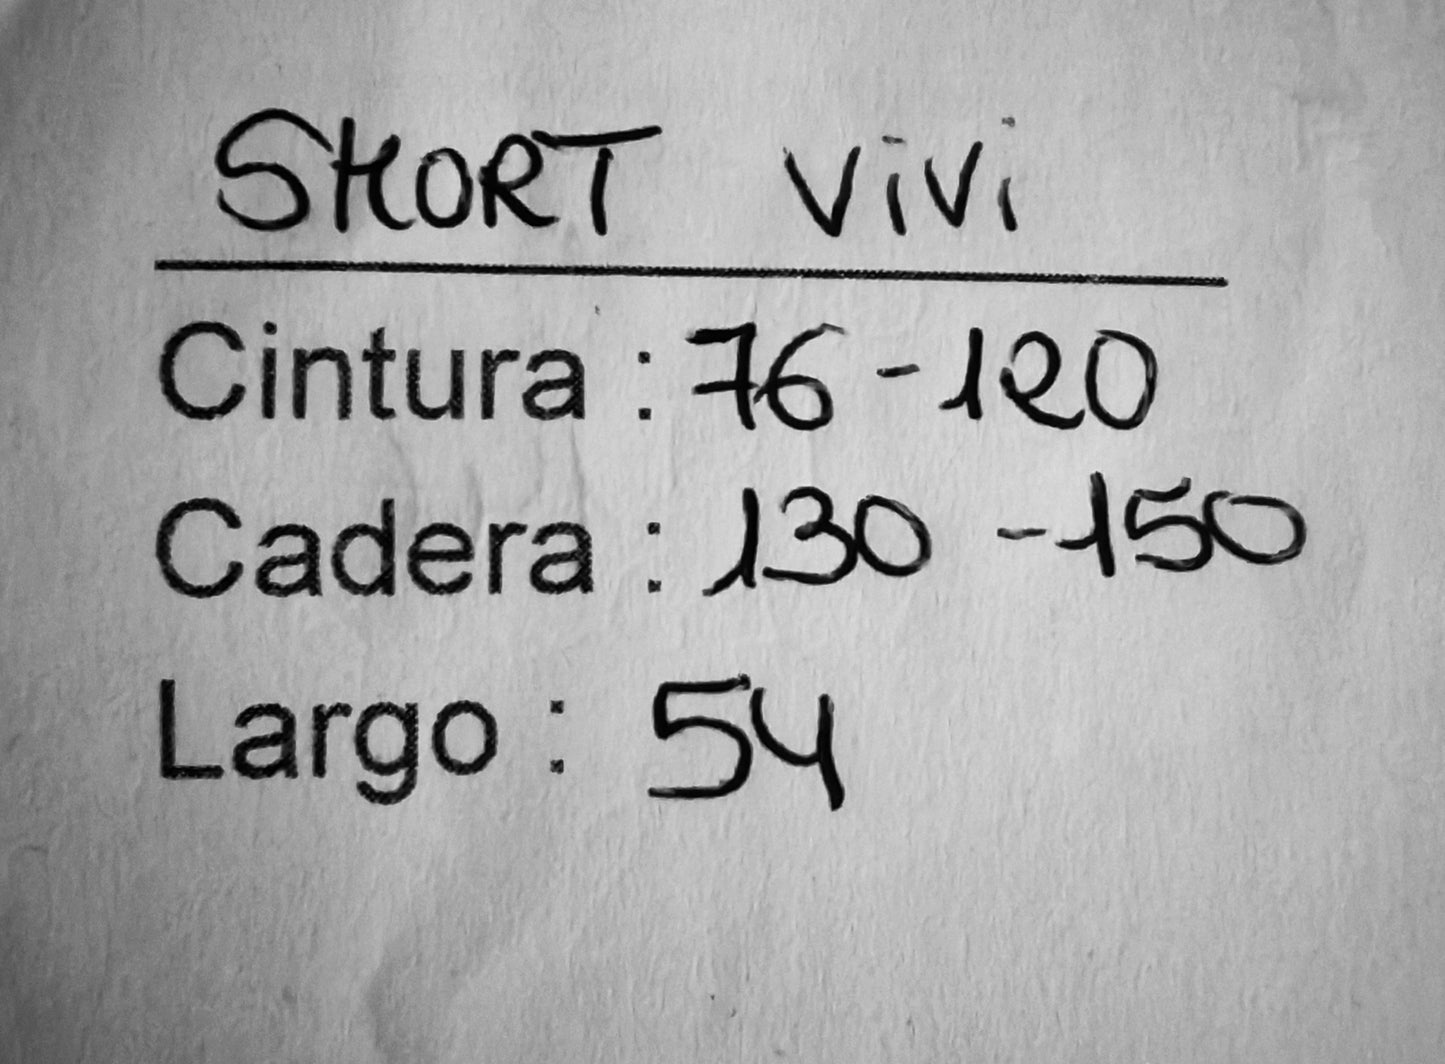 SHORT ViVi
Cintura : 76-120
Cadera : 130-150
Largo : 54